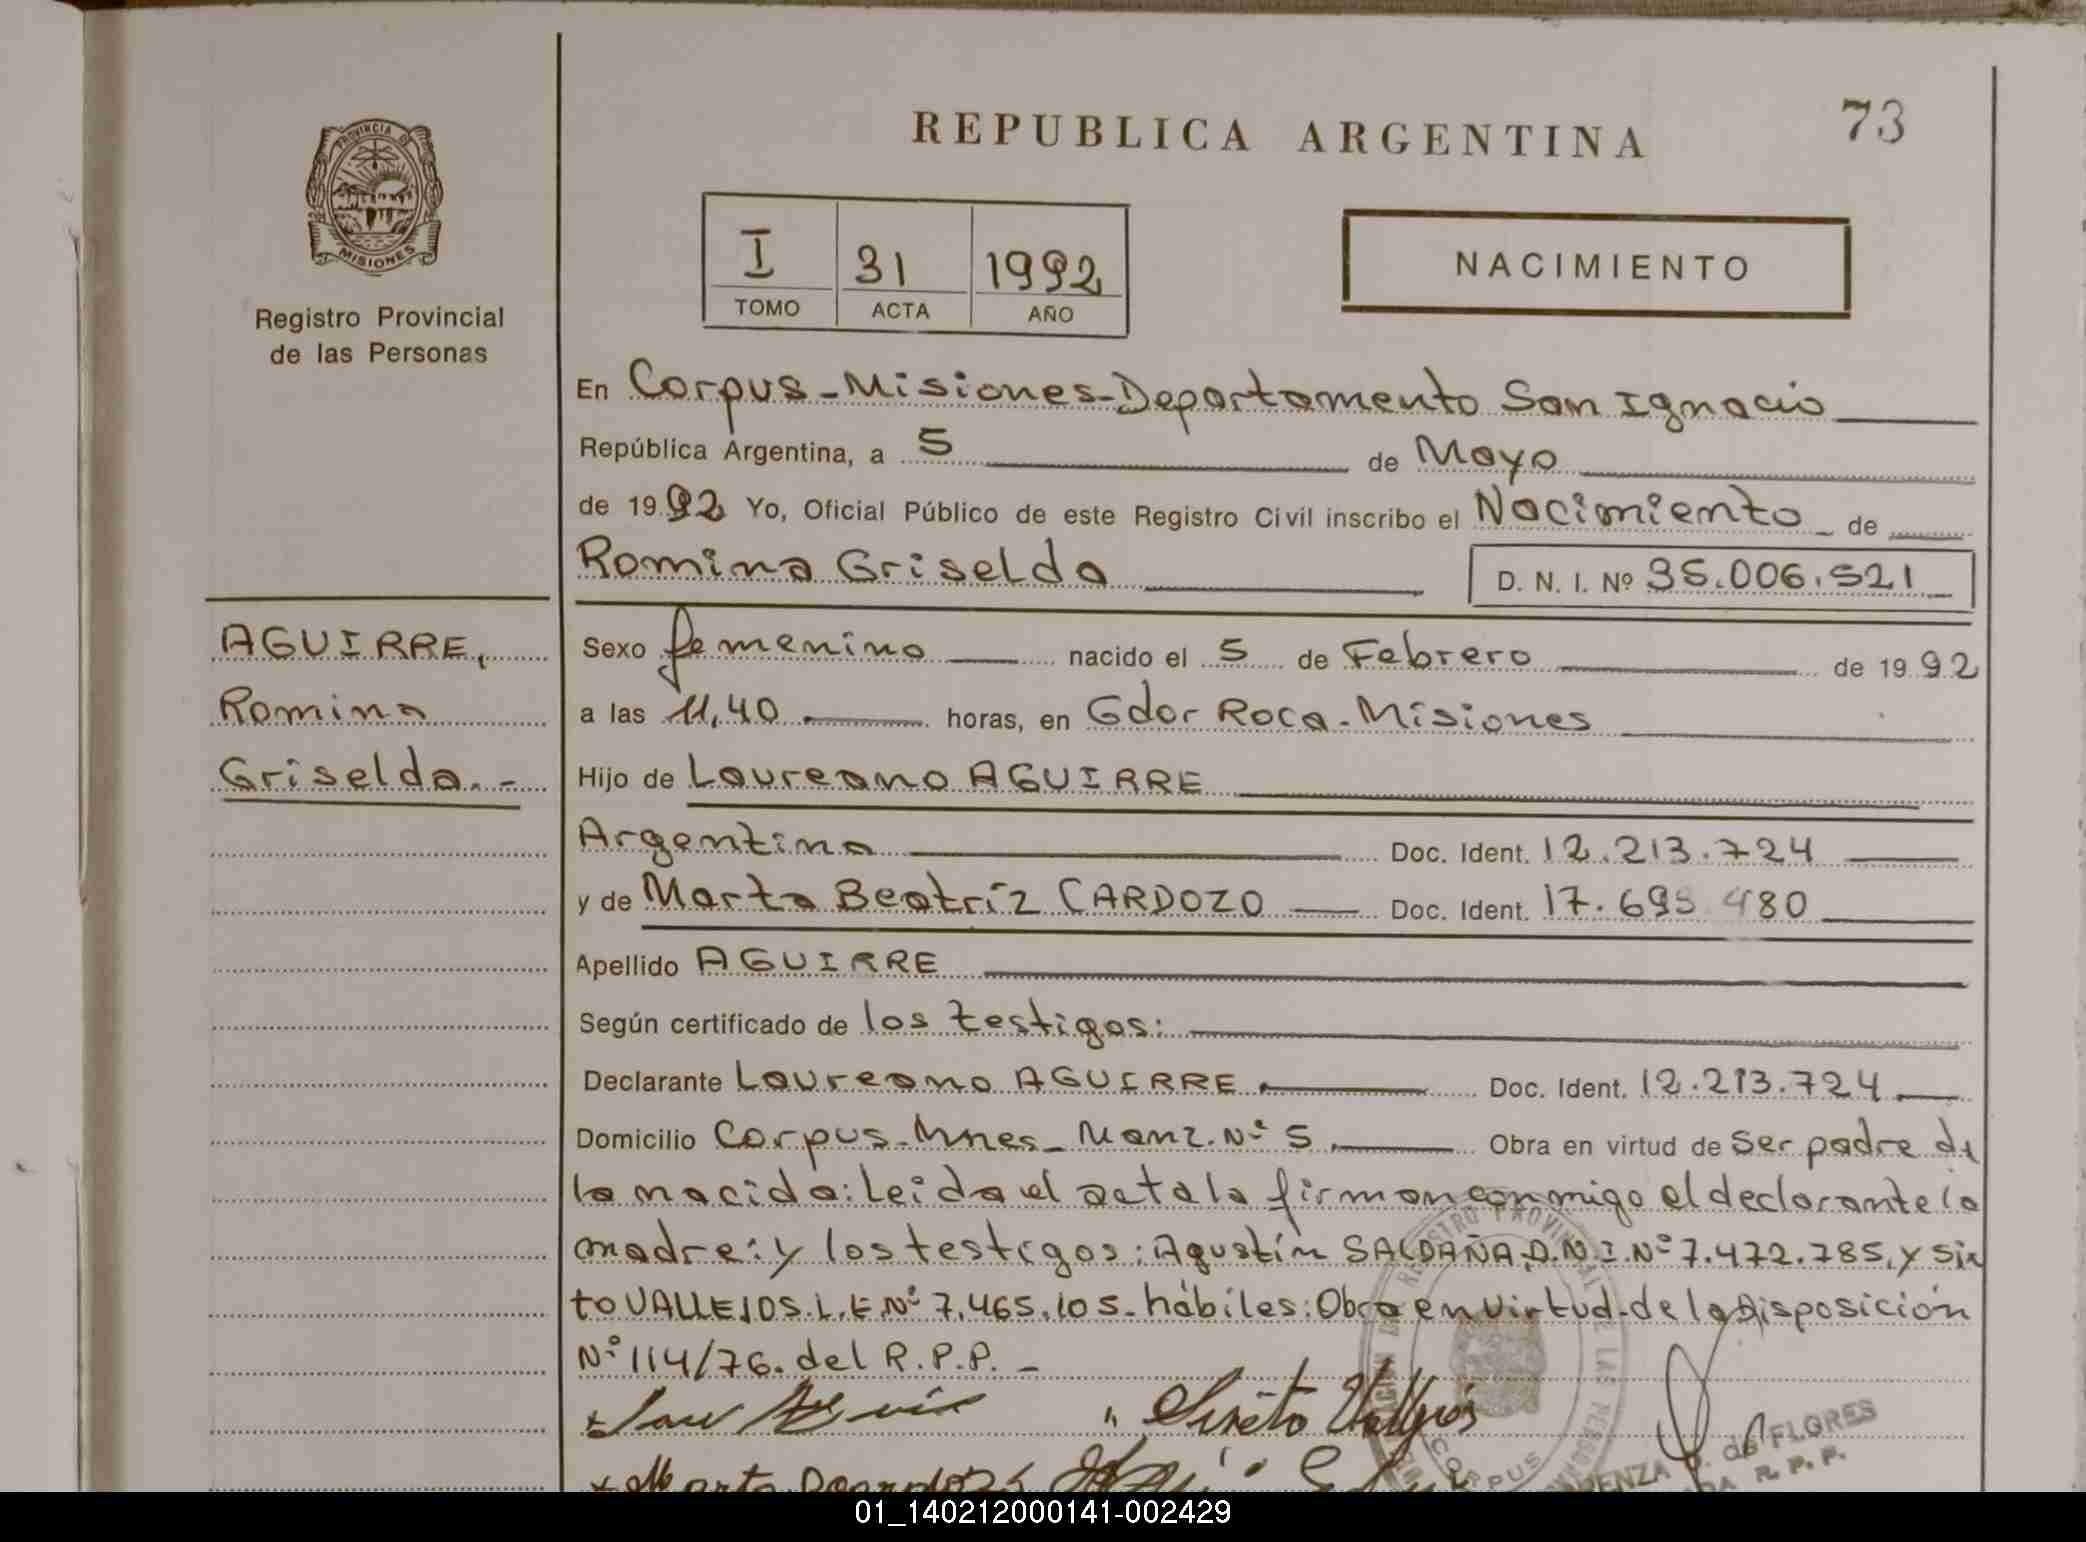 73
REPUBLICA ARGENTINA
PROVINCIA DE
MISIONES
Registro Provincial
de las Personas
I 31 1992
TOMO ACTA AÑO
NACIMIENTO
En Corpus-Misiones-Departamento San Ignacio
República Argentina, a 5 de Mayo
de 1992 Yo, Oficial Público de este Registro Civil inscribo el Nacimiento de
Romina Griselda D. N. I. Nº 35.006.521
AGUIRRE,
Romina
Griselda.-
Sexo femenino nacido el 5 de Febrero de 1992
a las 11,40 horas, en Gdor Roca-Misiones
Hijo de Laureano AGUIRRE
Argentina Doc. Ident. 12.213.724
y de Marta Beatríz CARDOZO Doc. Ident. 17.693 480
Apellido AGUIRRE
Según certificado de los testigos:
Declarante Laureano AGUIRRE Doc. Ident. 12.213.724
Domicilio Corpus-Mnes- Manz. Nº 5 Obra en virtud de ser padre de
la nacida: Leida el acta la firman conmigo el declarante la
madre: y los testigos: Agustín SALDAÑA D.N.I. Nº 7.472.785, y Six
to VALLEJOS. L.E. Nº 7.465.105- hábiles: Obra en virtud-de la Disposición
Nº 114/76. del R.P.P.-
Sixto Vallejos
CORPUS
de FLORES
R. P. P.
01_140212000141-002429